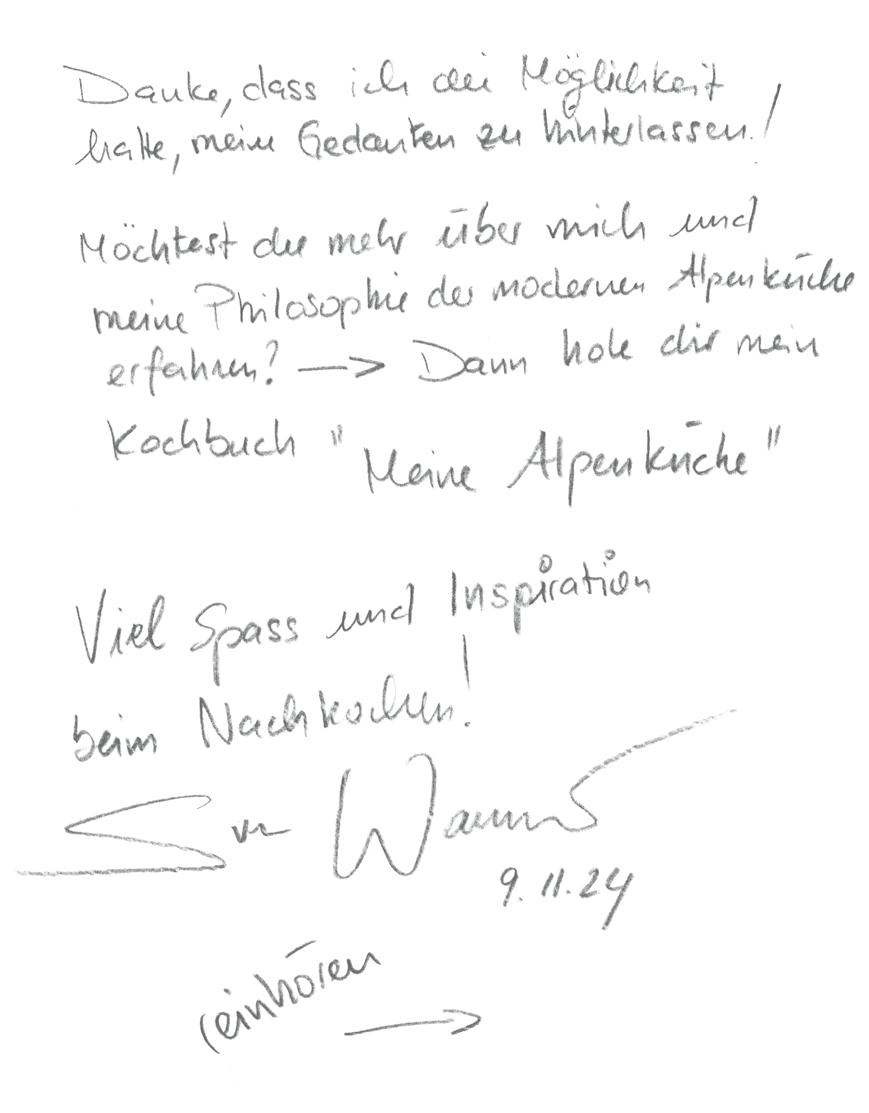 Danke, dass ich die Möglichkeit
hatte, meine Gedanken zu hinterlassen!
Möchtest du mehr über mich und
meine Philosophie der modernen Alpenküche
erfahren? → Dann hole dir mein
Kochbuch "Meine Alpenküche"
Viel Spass und Inspiration
beim Nachkochen!
Sven Wassmer
9.11.24
(einhören
→